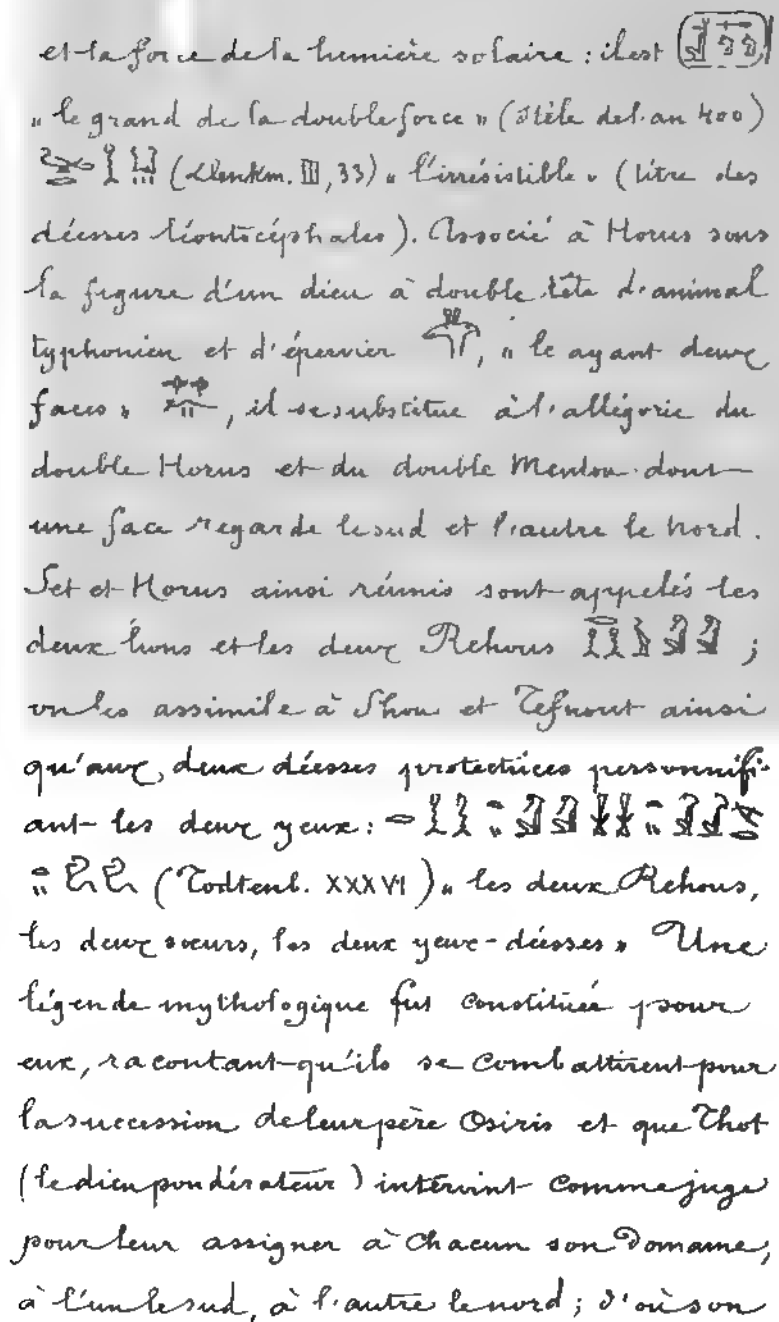 et la force de la lumière solaire : il est
« le grand de la double force » (Stèle de l'an 400)
(Denkm. III, 33) « l'irrésistible » (titre des
déesses léontocéphales). Associé à Horus sous
la figure d'un dieu à double tête d'animal
typhonien et d'épervier , « le ayant deux
faces » , il se substitue à l'allégorie du
double Horus et du double Mentou dont
une face regarde le sud et l'autre le nord.
Set et Horus ainsi réunis sont appelés les
deux lions et les deux Rehous ;
on les assimile à Shou et Tefnout ainsi
qu'aux deux déesses protectrices personnifi-
ant les deux yeux :
(Todtenb. XXXVI) « les deux Rehous,
les deux sœurs, les deux yeux-déesses » Une
légende mythologique fut constituée pour
eux, racontant qu'ils se combattirent pour
la succession de leur père Osiris et que Thot
(le dieu pondérateur) intervint comme juge
pour leur assigner à chacun son domaine,
à l'un le sud, à l'autre le nord ; d'où son